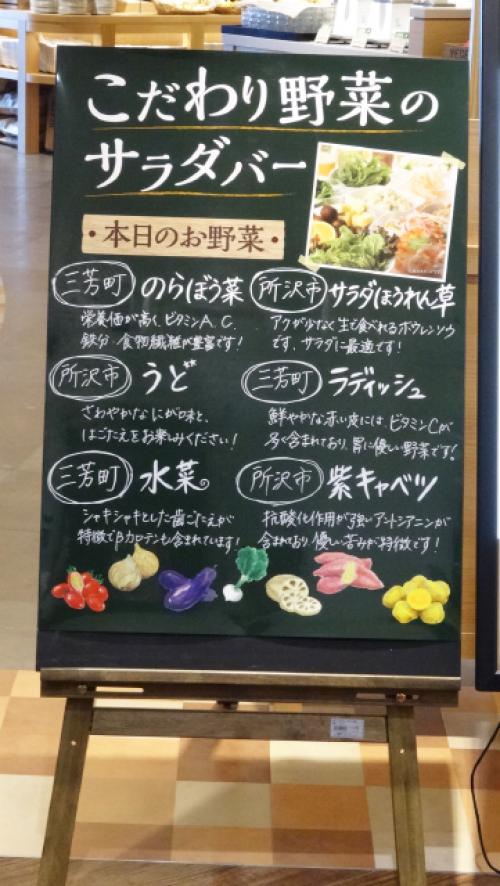 こだわり野菜の
サラダバー
・本日のお野菜・
三芳町 のらぼう菜
栄養価が高く、ビタミンA、C、
鉄分、食物繊維が豊富です!
所沢市 サラダほうれん草
アクが少なく生で食べれるホウレンソウ
です、サラダに最適です!
所沢市 うど
さわやかなにが味と、
はごたえをお楽しみください!
三芳町 ラディッシュ
鮮やかな赤い皮には、ビタミンCが
多く含まれており、胃に優しい野菜です!
三芳町 水菜
シャキシャキとした歯ごたえが
特徴でβカロテンも含まれています!
所沢市 紫キャベツ
抗酸化作用が強いアントシアニンが
含まれており、優しい苦みが特徴です!